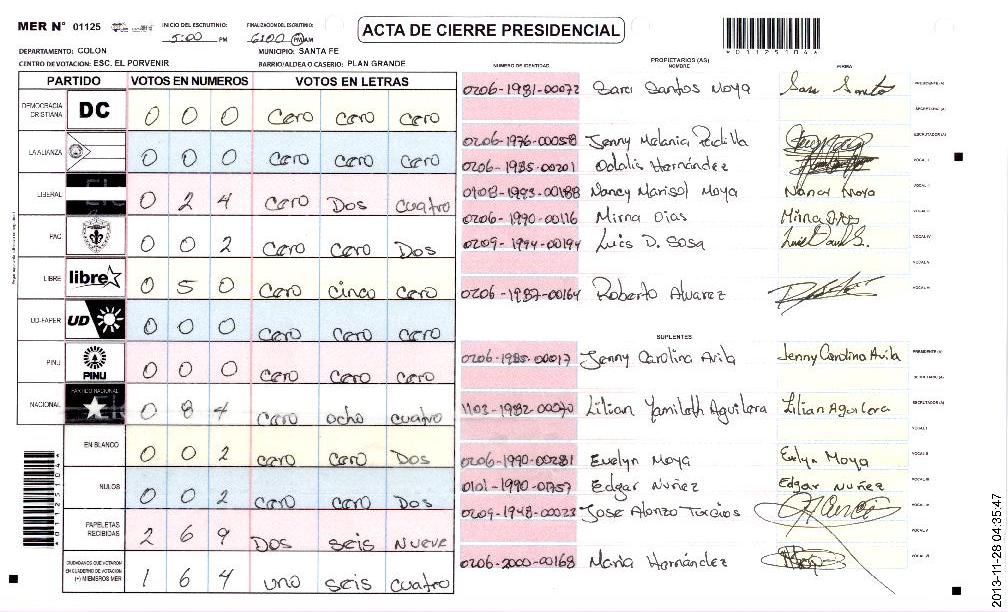 MER Nº 01125
INICIO DEL ESCRUTINIO: 5:00 PM
FINALIZACION DEL ESCRUTINIO: 6:00 PM/AM
ACTA DE CIERRE PRESIDENCIAL
*0112510 4*
DEPARTAMENTO: COLON
MUNICIPIO: SANTA FE
CENTRO DE VOTACION: ESC. EL PORVENIR
BARRIO/ALDEA O CASERIO: PLAN GRANDE
PARTIDO VOTOS EN NUMEROS VOTOS EN LETRAS
DEMOCRACIA CRISTIANA DC 0 0 0 Cero Cero Cero
LA ALIANZA 0 0 0 Cero Cero Cero
LIBERAL 0 2 4 Cero Dos cuatro
PAC 0 0 2 Cero Cero Dos
LIBRE libre 0 5 0 Cero cinco Cero
UD-FAPER UD 0 0 0 Cero Cero Cero
PINU PINU 0 0 0 Cero Cero Cero
NACIONAL PARTIDO NACIONAL 0 8 4 Cero ocho cuatro
EN BLANCO 0 0 2 Cero Cero Dos
NULOS 0 0 2 Cero Cero Dos
PAPELETAS RECIBIDAS 2 6 9 Dos seis Nueve
CIUDADANOS QUE VOTARON EN CUADERNO DE VOTACION (+) MIEMBROS MER 1 6 4 uno seis cuatro
NUMERO DE IDENTIDAD PROPIETARIOS (AS) NOMBRE FIRMA
0206-1981-00072 Sara Santos Moya Sara Santos PRESIDENTE (A)
SECRETARIO (A)
0206-1976-00058 Jenny Melania Padilla ESCRUTADOR (A)
0206-1985-00201 Odalis Hernández VOCAL I
0108-1993-00188 Nancy Marisol Moya Nancy Moya VOCAL II
0206-1990-00116 Mirna Dias Mirna Dias VOCAL III
0209-1994-00194 Luis D. Sosa VOCAL IV
VOCAL V
0206-1987-00164 Roberto Alvarez VOCAL VI
SUPLENTES
0206-1985-00017 Jenny Carolina Avila Jenny Carolina Avila PRESIDENTE (A)
SECRETARIO (A)
1103-1982-00070 Lilian Yamileth Aguilera Lilian Aguilera ESCRUTADOR (A)
VOCAL I
0206-1990-00281 Evelyn Moya Evelyn Moya VOCAL II
0101-1990-01757 Edgar Nuñez Edgar Nuñez VOCAL III
0209-1948-00023 Jose Alonzo Turcios VOCAL IV
VOCAL V
0206-2000-00168 Maria Hernández VOCAL VI
2013-11-28 04:35:47